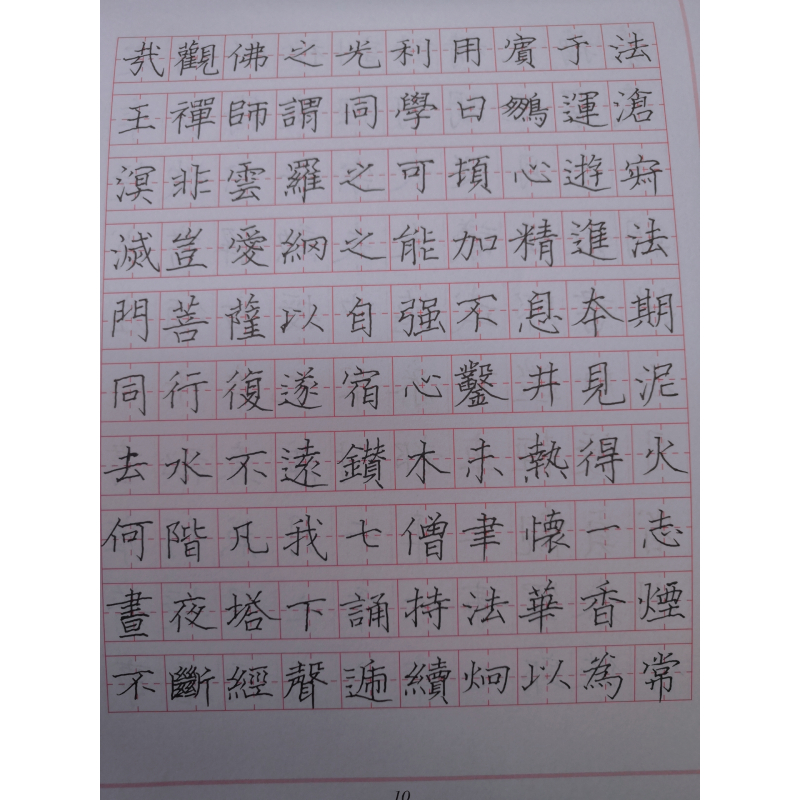 哉觀佛之光利用賓于法
王禪師謂同學曰鵷運滄
溟非雲羅之可頓心遊寂
滅豈愛網之能加精進法
門菩薩以自强不息本期
同行復遂宿心鑿井見泥
去水不遠鑽木未熱得火
何階凡我七僧聿懷一志
晝夜塔下誦持法華香煙
不斷經聲遞續炯以為常
10